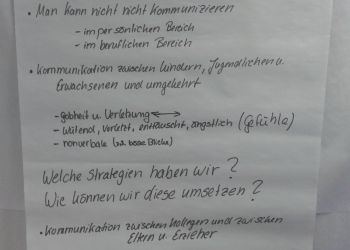 • Man kann nicht nicht kommunizieren
- im persönlichen Bereich
- im beruflichen Bereich
• Kommunikation zwischen Kindern, Jugendlichen u.
Erwachsenen und umgekehrt
- u. Verletzung ↔
- wütend, verletzt, enttäuscht, ängstlich (Gefühle)
- nonverbale (z.B. böse Blicke)
Welche Strategien haben wir?
Wie können wir diese umsetzen?
• Kommunikation zwischen Kollegen und zwischen
Eltern u. Erzieher